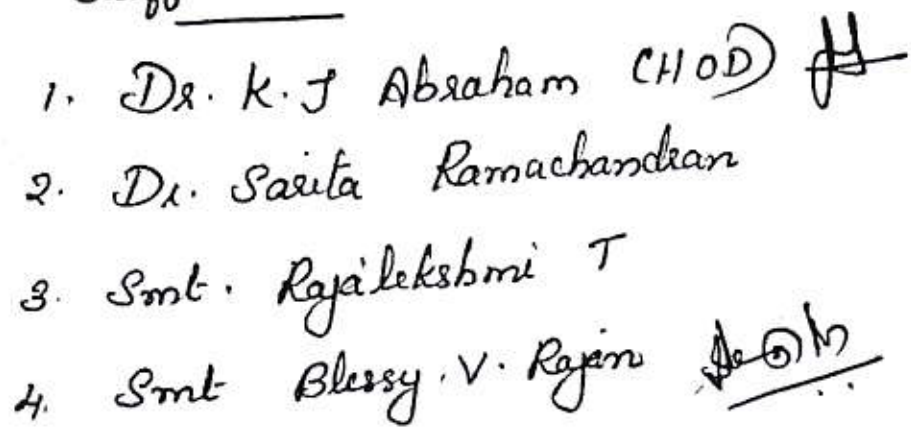 1. Dr. K. J Abraham (HOD)
2. Dr. Sarita Ramachandran
3. Smt. Rajalekshmi T
4. Smt Blessy. V. Rajan